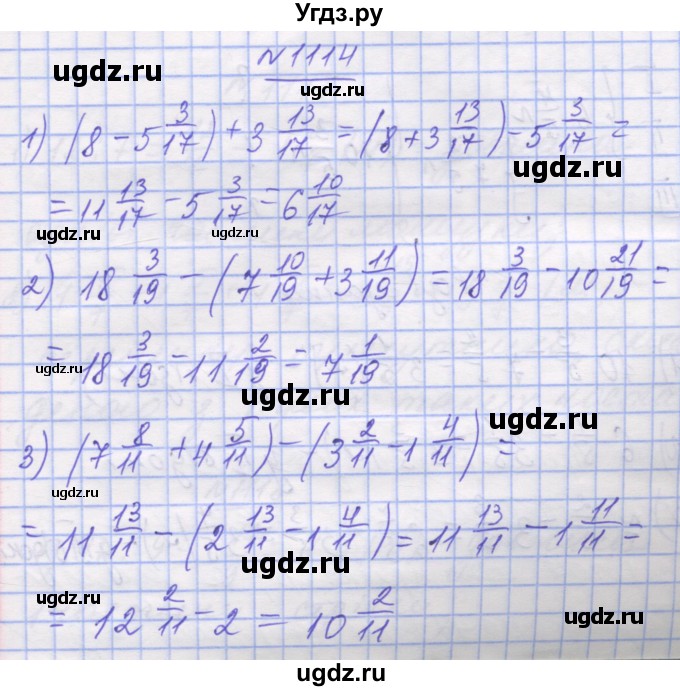 Угдз.ру
ugdz.ru
№1114
1) (8 - 5 3/17) + 3 13/17 = (8 + 3 13/17) - 5 3/17 =
ugdz.ru
= 11 13/17 - 5 3/17 = 6 10/17
ugdz.ru
2) 18 3/19 - (7 10/19 + 3 11/19) = 18 3/19 - 10 21/19 =
ugdz.ru
= 18 3/19 - 11 2/19 = 7 1/19
ugdz.ru
ugdz.ru
3) (7 8/11 + 4 5/11) - (3 2/11 - 1 4/11) =
ugdz.ru
= 11 13/11 - (2 13/11 - 1 4/11) = 11 13/11 - 1 11/11 =
ugdz.ru
ugdz.ru
= 12 2/11 - 2 = 10 2/11
ugdz.ru
ugdz.ru